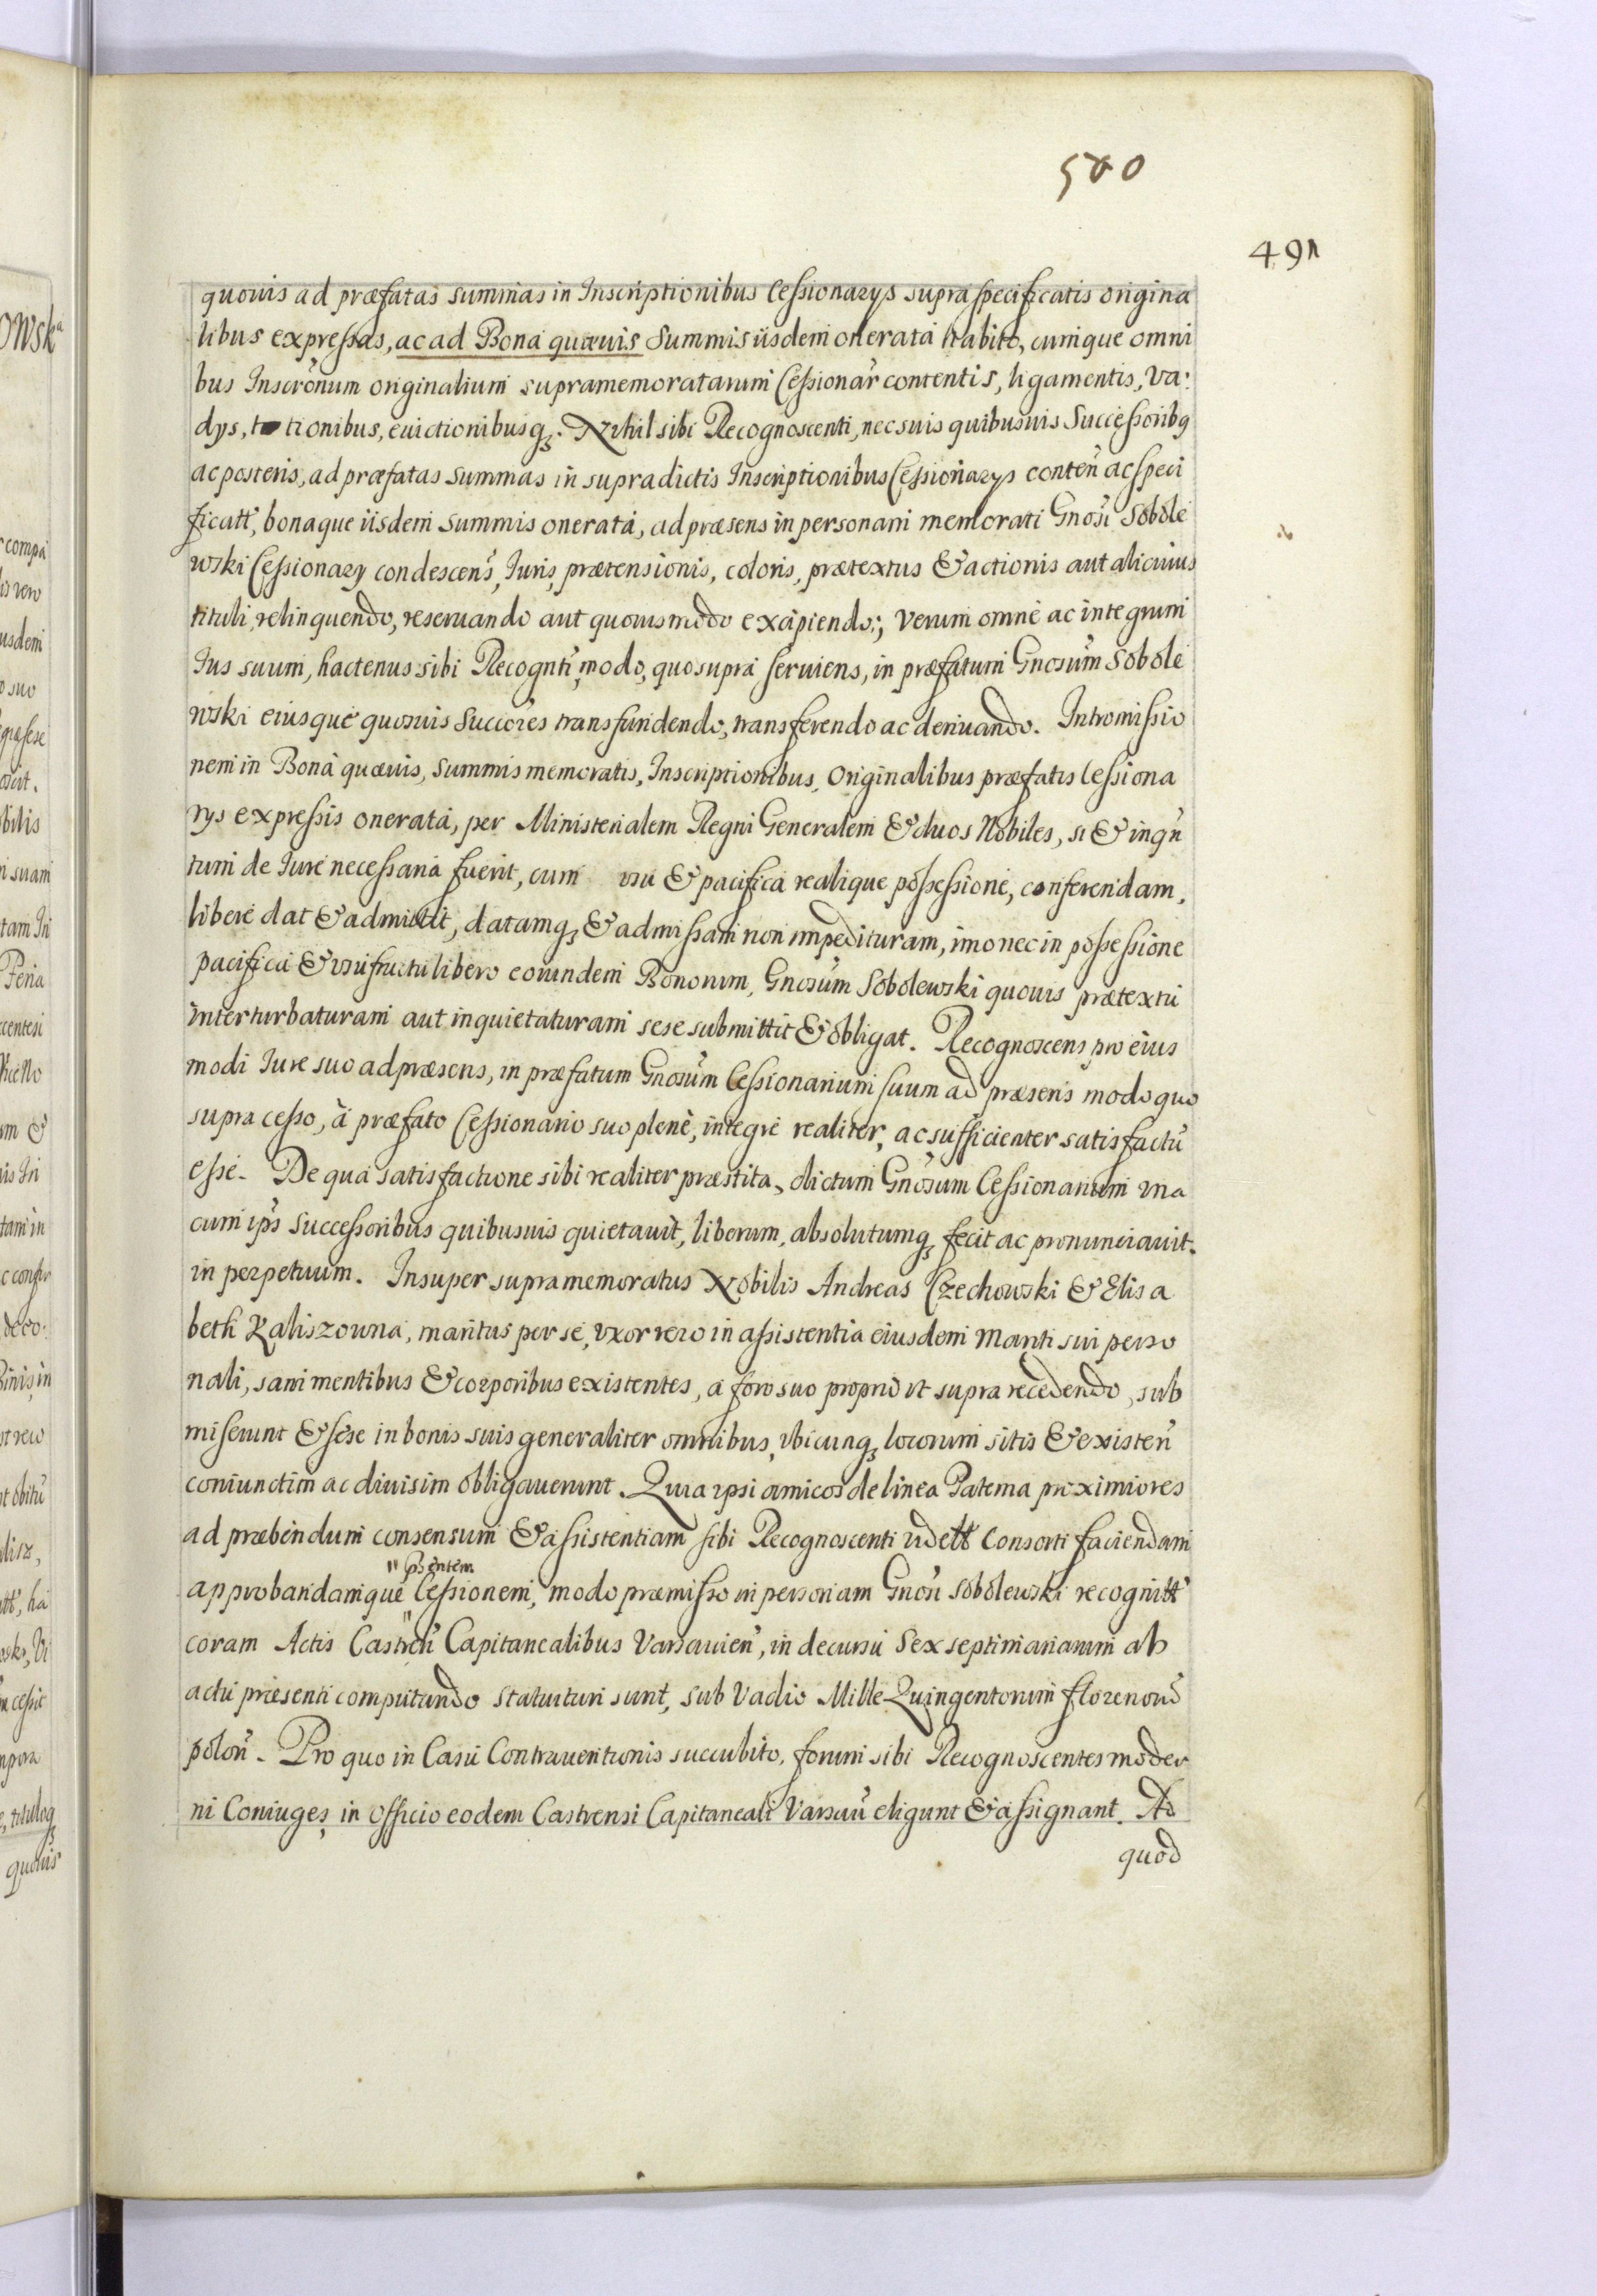 580
491
quouis ad præfatas summas in Inscriptionibus Cessionarys supra specificatis origina
libus expressas, ac ad Bona quævis summis iisdem onerata habito, cumque omni
bus Inscrõnum originalium supramemoratarum Cessionar̃ contentis, ligamentis, va:
dys, tionibus, euictionibusq₃. Nihil sibi Recognoscenti, nec suis quibusuis Successoribq
ac posteris, ad præfatas summas in supradictis Inscriptionibus Cessionarys conteñ ac speci
ficatt̃, bonaque iisdem summis onerata, ad præsens in personam memorati Gnosi Sobole
wski Cessionary condescens̃, Iuris, prætensionis, coloris, prætextus & actionis aut alicuius
tituli, relinquendo, reseruando aut quouismodo excipiendo; verum omne ac integrum
Ius suum, hactenus sibi Recognti, modo, quo supra seruiens, in præfatum Gnosum Sobole
wski eiusque quosuis Succores transfundendo, transferendo ac deriuando. Intromissio
nem in Bona quæuis, summis memoratis, Inscriptionibus, Originalibus præfatis Cessiona
rys expressis onerata, per Ministerialem Regni Generalem & duos Nobiles, si & inqũ
tum de Iure necessaria fuerit, cum usu & pacifica realique possessione, conferendam,
libere dat & admittit, datamq₃ & admissam non impedituram, imo nec in possessione
pacifica & usufructu libero eorundem Bonorum, Gnosum Sobolewski quouis prætextu
interturbaturam aut inquietaturam sese submittit & obligat. Recognoscens, pro eius
modi Iure suo ad præsens, in præfatum Gnosum Cessionarium suum ad præsens modo quo
supra cesso, à præfato Cessionario suo plenè, integrè realiter, ac sufficienter satisfactũ
esse. De qua satisfactione sibi realiter præstita, dictum Gnosum Cessionarium una
cum ips̃ successoribus quibusuis quietauit, liberum, absolutumq₃ fecit ac pronunciauit.
in perpetuum. Insuper supramemoratus Nobilis Andreas Czechowski & Elisa
beth Kaliszowna, maritus per se, vxor vero in assistentia eiusdem Mariti sui perso
nali, sani mentibus & corporibus existentes, a foro suo proprio ut supra recedendo, sub
miserunt & sese in bonis suis generaliter omnibus, vbicunq₃ locorum sitis & existeñ
coniunctim ac diuisim obligauerunt. Quia ipsi amicos de linea Paterna proximiores
ad præbendum consensum & assistentiam sibi Recognoscenti udett Consorti faciendam
" p̃sentem
approbandamque " Cessionem, modo præmisso in personam Gnosi Sobolewski recognitt
coram Actis Castreñ Capitanealibus Varsauieñ, in decursu sex septimanarum ab
actu præsenti computando statuituri sunt, sub Vadio Mille Quingentorum florenorũ
poloñ. Pro quo in Casu Contrauentionis succubito, forum sibi Recognoscentes moder
ni Coniuges, in Officio eodem Castrensi Capitaneali Varsaũ eligunt & assignant. Ad
quod